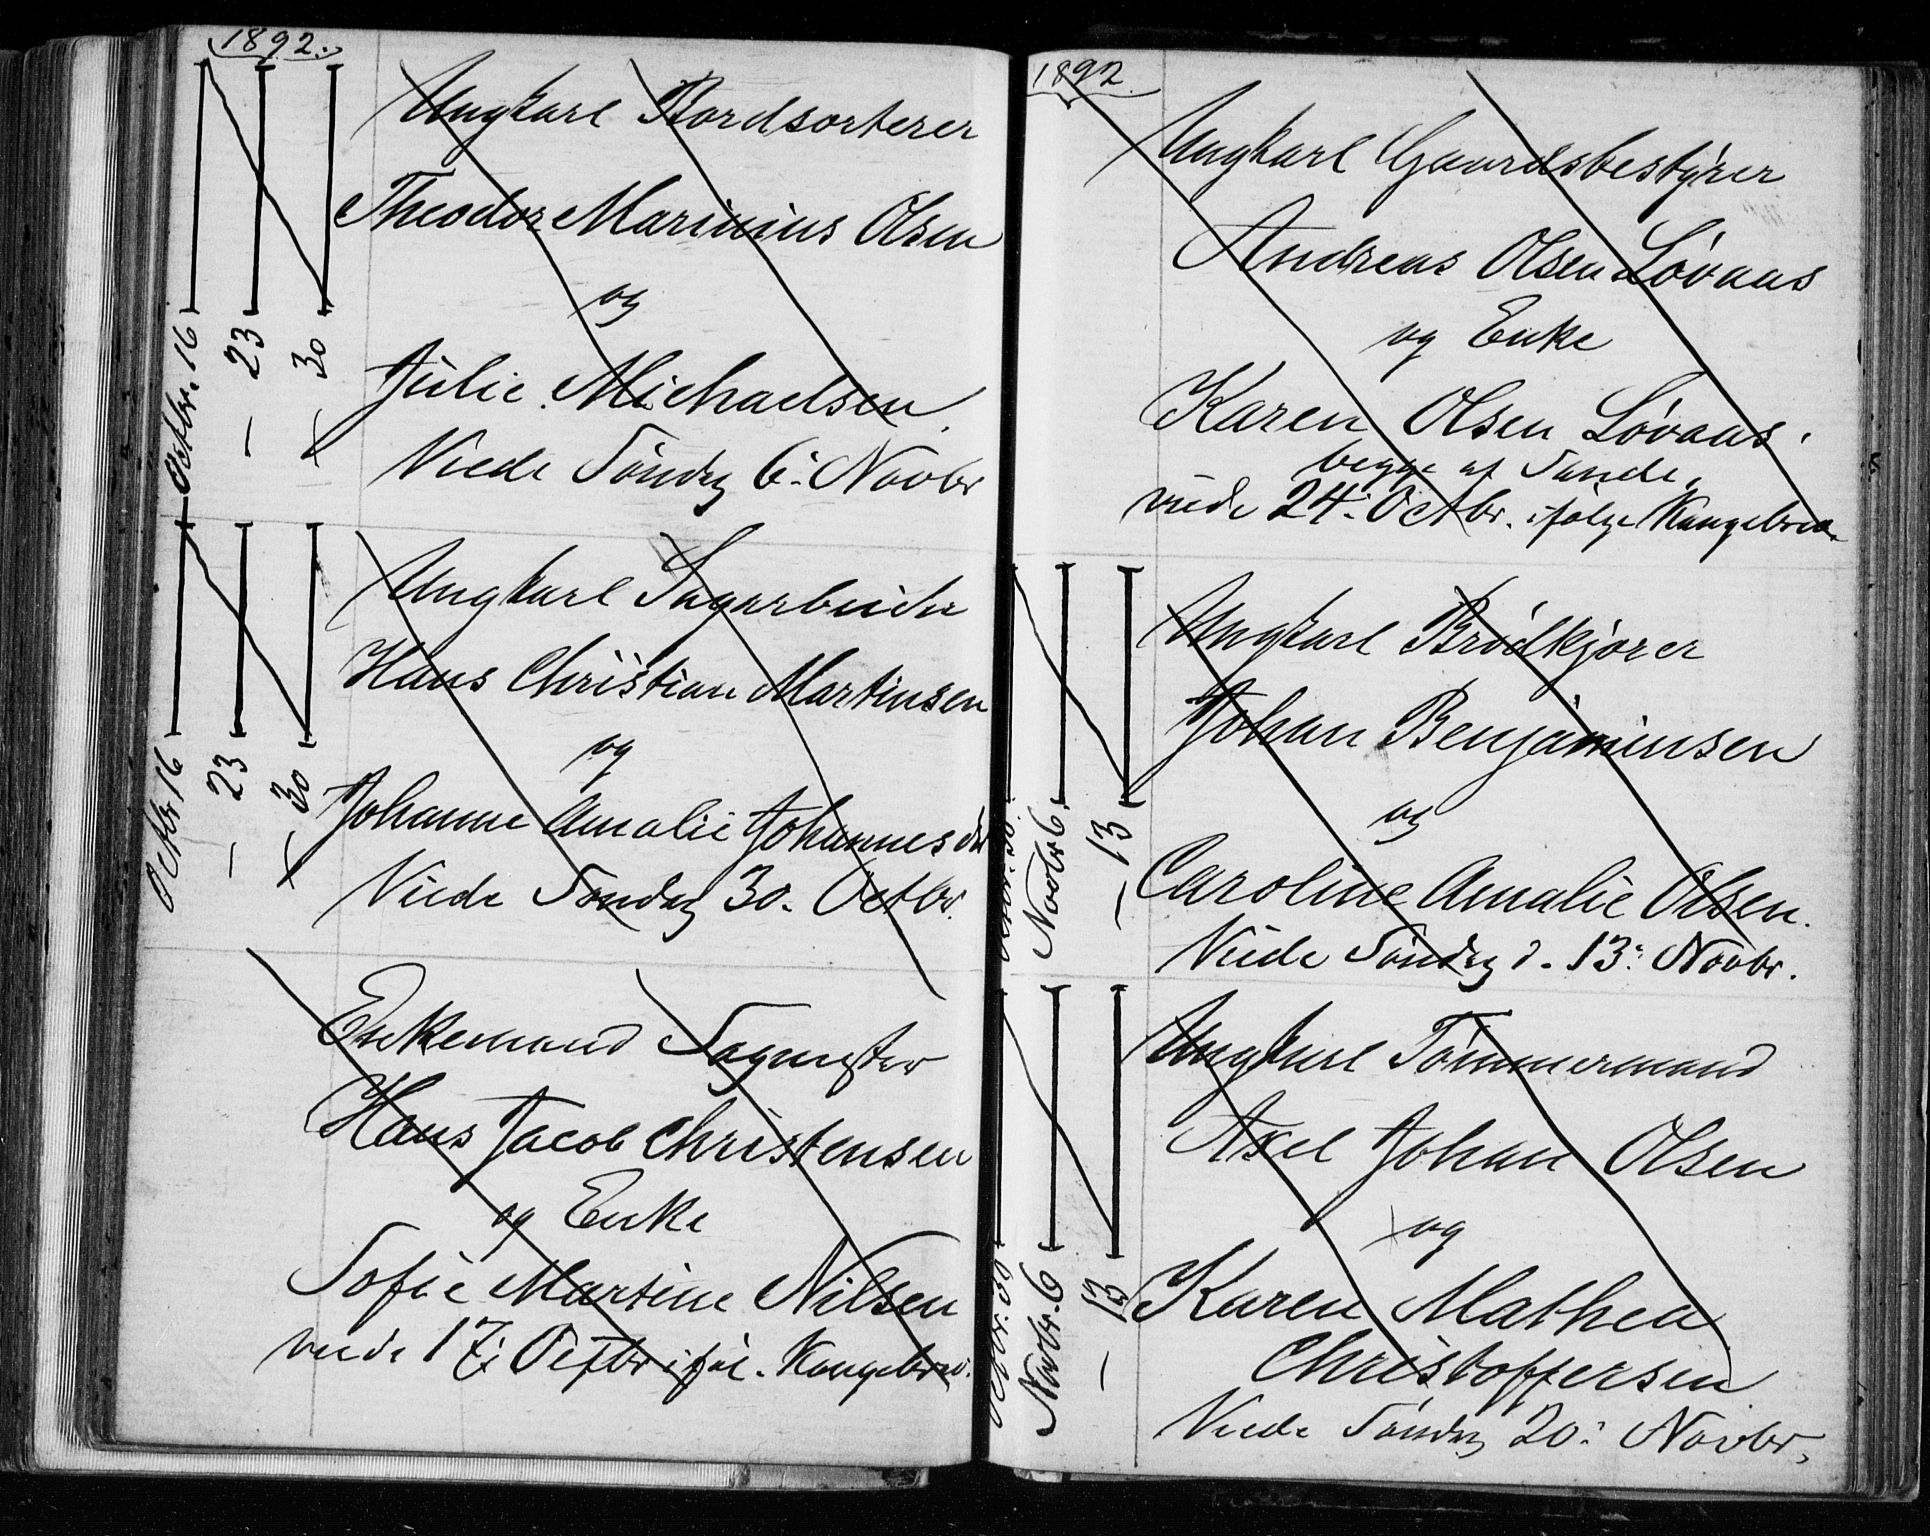 1892.
Octbr. 16
— 23
— 30
Ungkarl Bordsorterer
Theodor Marinius Olsen
og
Julie Michaelsen.
Viede Søndag 6: Novbr
Octbr 16
— 23
— 30
Ungkarl Sagarbeider
Hans Christian Martinsen
og
Johanne Amalie Johannesdtr
Viede Søndag 30. Octbr.
Enkemand Sagmester
Hans Jacob Christensen
og Enke
Sofie Martine Nilsen
viede 17: Octbr iføl. Kongebrev.
1892.
Ungkarl Gaardsbestyrer
Andreas Olsen Løvaas
og Enke
Karen Olsen Løvaas.
begge af Sande.
viede 24: Octbr. ifølge Kongebrev.
Octbr. 30
Novbr 6
— 13
Ungkarl Brødkjører
Johan Benjaminsen
og
Caroline Amalie Olsen.
Viede Søndag d. 13: Novbr.
Octbr. 30
Novbr. 6
— 13
Ungkarl Tømmermand
Axel Johan Olsen
og
Karen Mathea
Christoffersen
Viede Søndag 20: Novbr.